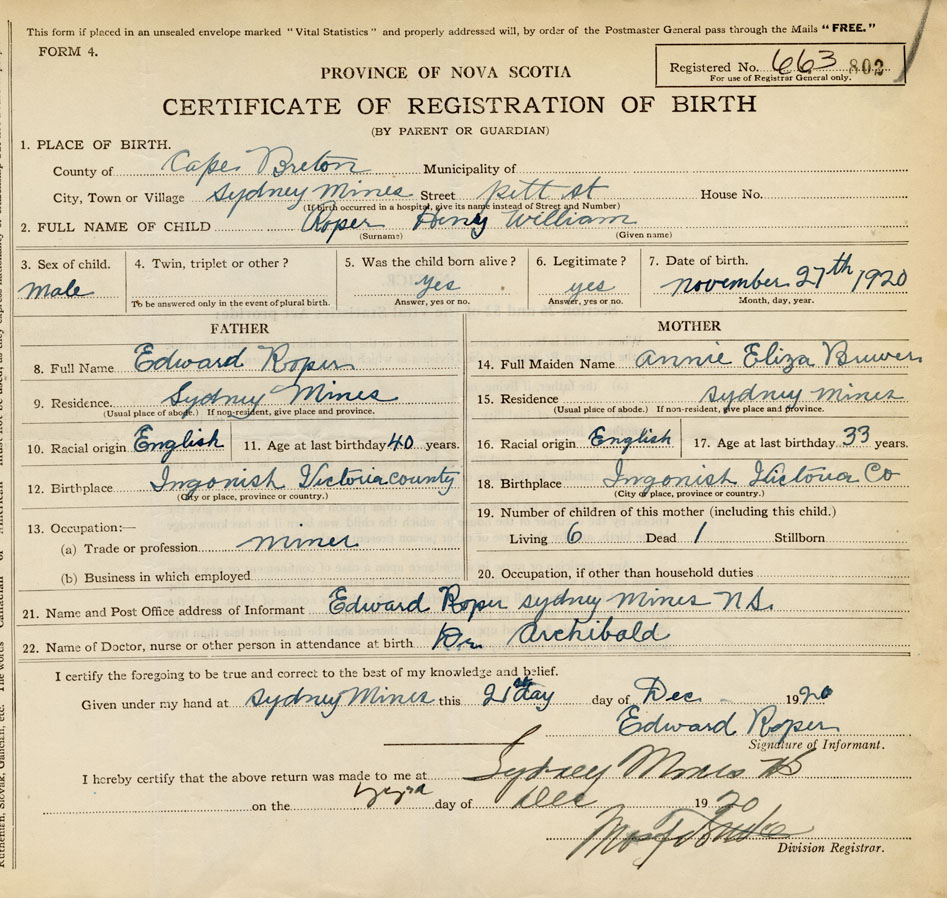 This form if placed in an unsealed envelope marked "Vital Statistics" and properly addressed will, by order of the Postmaster General pass through the Mails "FREE."
FORM 4.
Registered No. 663 802
For use of Registrar General only.
PROVINCE OF NOVA SCOTIA
CERTIFICATE OF REGISTRATION OF BIRTH
(BY PARENT OR GUARDIAN)
1. PLACE OF BIRTH.
County of Cape Breton Municipality of
City, Town or Village Sydney Mines Street pitt st House No.
(If birth occurred in a hospital, give its name instead of Street and Number)
2. FULL NAME OF CHILD Roper Henry William
(Surname) (Given name)
3. Sex of child. 4. Twin, triplet or other? 5. Was the child born alive? 6. Legitimate? 7. Date of birth.
Male yes yes november 27th 1920
To be answered only in the event of plural birth. Answer, yes or no. Answer, yes or no. Month, day, year.
FATHER
8. Full Name Edward Roper
9. Residence. Sydney Mines
(Usual place of abode.) If non-resident, give place and province.
10. Racial origin English 11. Age at last birthday 40 years.
12. Birthplace Ingonish Victoria county
(City or place, province or country.)
13. Occupation:—
(a) Trade or profession miner
(b) Business in which employed
MOTHER
14. Full Maiden Name annie Eliza Brewer
15. Residence sydney mines
(Usual place of abode.) If non-resident, give place and province.
16. Racial origin English 17. Age at last birthday 33 years.
18. Birthplace Ingonish Victoria Co
(City or place, province or country.)
19. Number of children of this mother (including this child.)
Living 6 Dead 1 Stillborn
20. Occupation, if other than household duties
21. Name and Post Office address of Informant Edward Roper sydney mines N.S.
22. Name of Doctor, nurse or other person in attendance at birth Dr. Archibald
I certify the foregoing to be true and correct to the best of my knowledge and belief.
Given under my hand at sydney Mines this 21st day day of Dec 1920
Edward Roper
Signature of Informant.
I hereby certify that the above return was made to me at Sydney Mines NS
on the day of Dec 1920
Division Registrar.